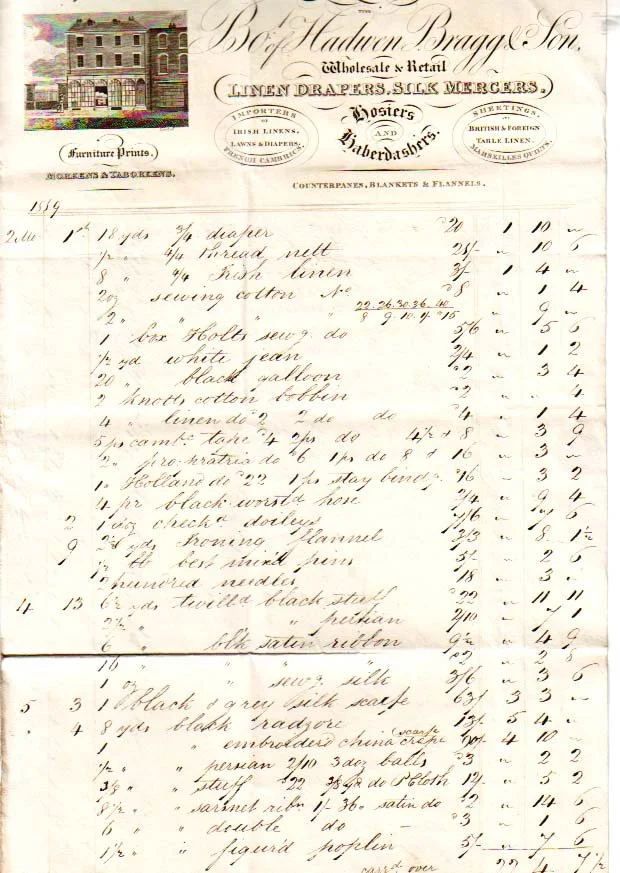 Bo.t of Hadwen Bragg & Son,
Wholesale & Retail
LINEN DRAPERS, SILK MERCERS,
IMPORTERS OF IRISH LINENS, LAWNS & DIAPERS, FRENCH CAMBRICS.
Hosiers AND Haberdashers.
SHEETINGS, BRITISH & FOREIGN TABLE LINEN, MARSEILLES QUILTS.
Furniture Prints,
MOREENS & TABOREENS.
COUNTERPANES, BLANKETS & FLANNELS.
1st 18 yds 3/4 diaper 20 1 10 "
1/2 " 4/4 thread nett 21/- " 10 6
8 " 4/4 Irish linen 3/- 1 4 "
2 oz sewing cotton No 8 " 1 4
22.26.30.36.40
2 " " " " 8 9 10 15 " 9 "
1 box Holts sewg do 5/6 " 5 6
1/2 yd white jean 2/4 " 1 2
20 " black galloon 2 " 3 4
2 knotts cotton bobbin 2 " " 4
4 " linen do 2 2 do do 4 " 1 4
5 ps cambc tape 4 2ps do 4 1/2 & 8 " 3 9
2 " do 6 1 ps do 8 & 16 " 3 "
1 " Holland do 22 1 ps stay bindg 16 " 3 2
4 pr black worstd hose 2/4 " 9 4
2 1 doz checkd doileys 7/6 " 7 6
9 2 1/2 yds Ironing flannel 3/3 " 8 1 1/2
1/2 lb best mix'd pins 5/- " 2 6
2 hundred needles 18 " 3 "
4 13 6 1/2 yds twilld black stuff 22 " 11 11
2 1/2 " " persian 2/10 " 7 1
6 " blk satin ribbon 9 1/2 " 4 9
16 " " " " 2 " 2 8
1 oz " sewg silk 3/6 " 3 6
5 3 1 black & grey silk scarfe 63/- 3 3 "
" 4 8 yds black radzore 13/- 5 4 "
1 " embroiderd china crepe scarfe 90/- 4 10 "
1/2 " " persian 2/10 3 doz balls 3 " 2 2
3/8 " " stuff 22 3/8 yd do P Cloth 12/- " 5 2
8 1/2 " " sarsnet ribn 1/- 36 " satin do 2 " 14 6
6 " " double do 3 " 1 6
1 1/2 " " figur'd poplin 5/- " 7 6
carrd over 22 4 7 1/2